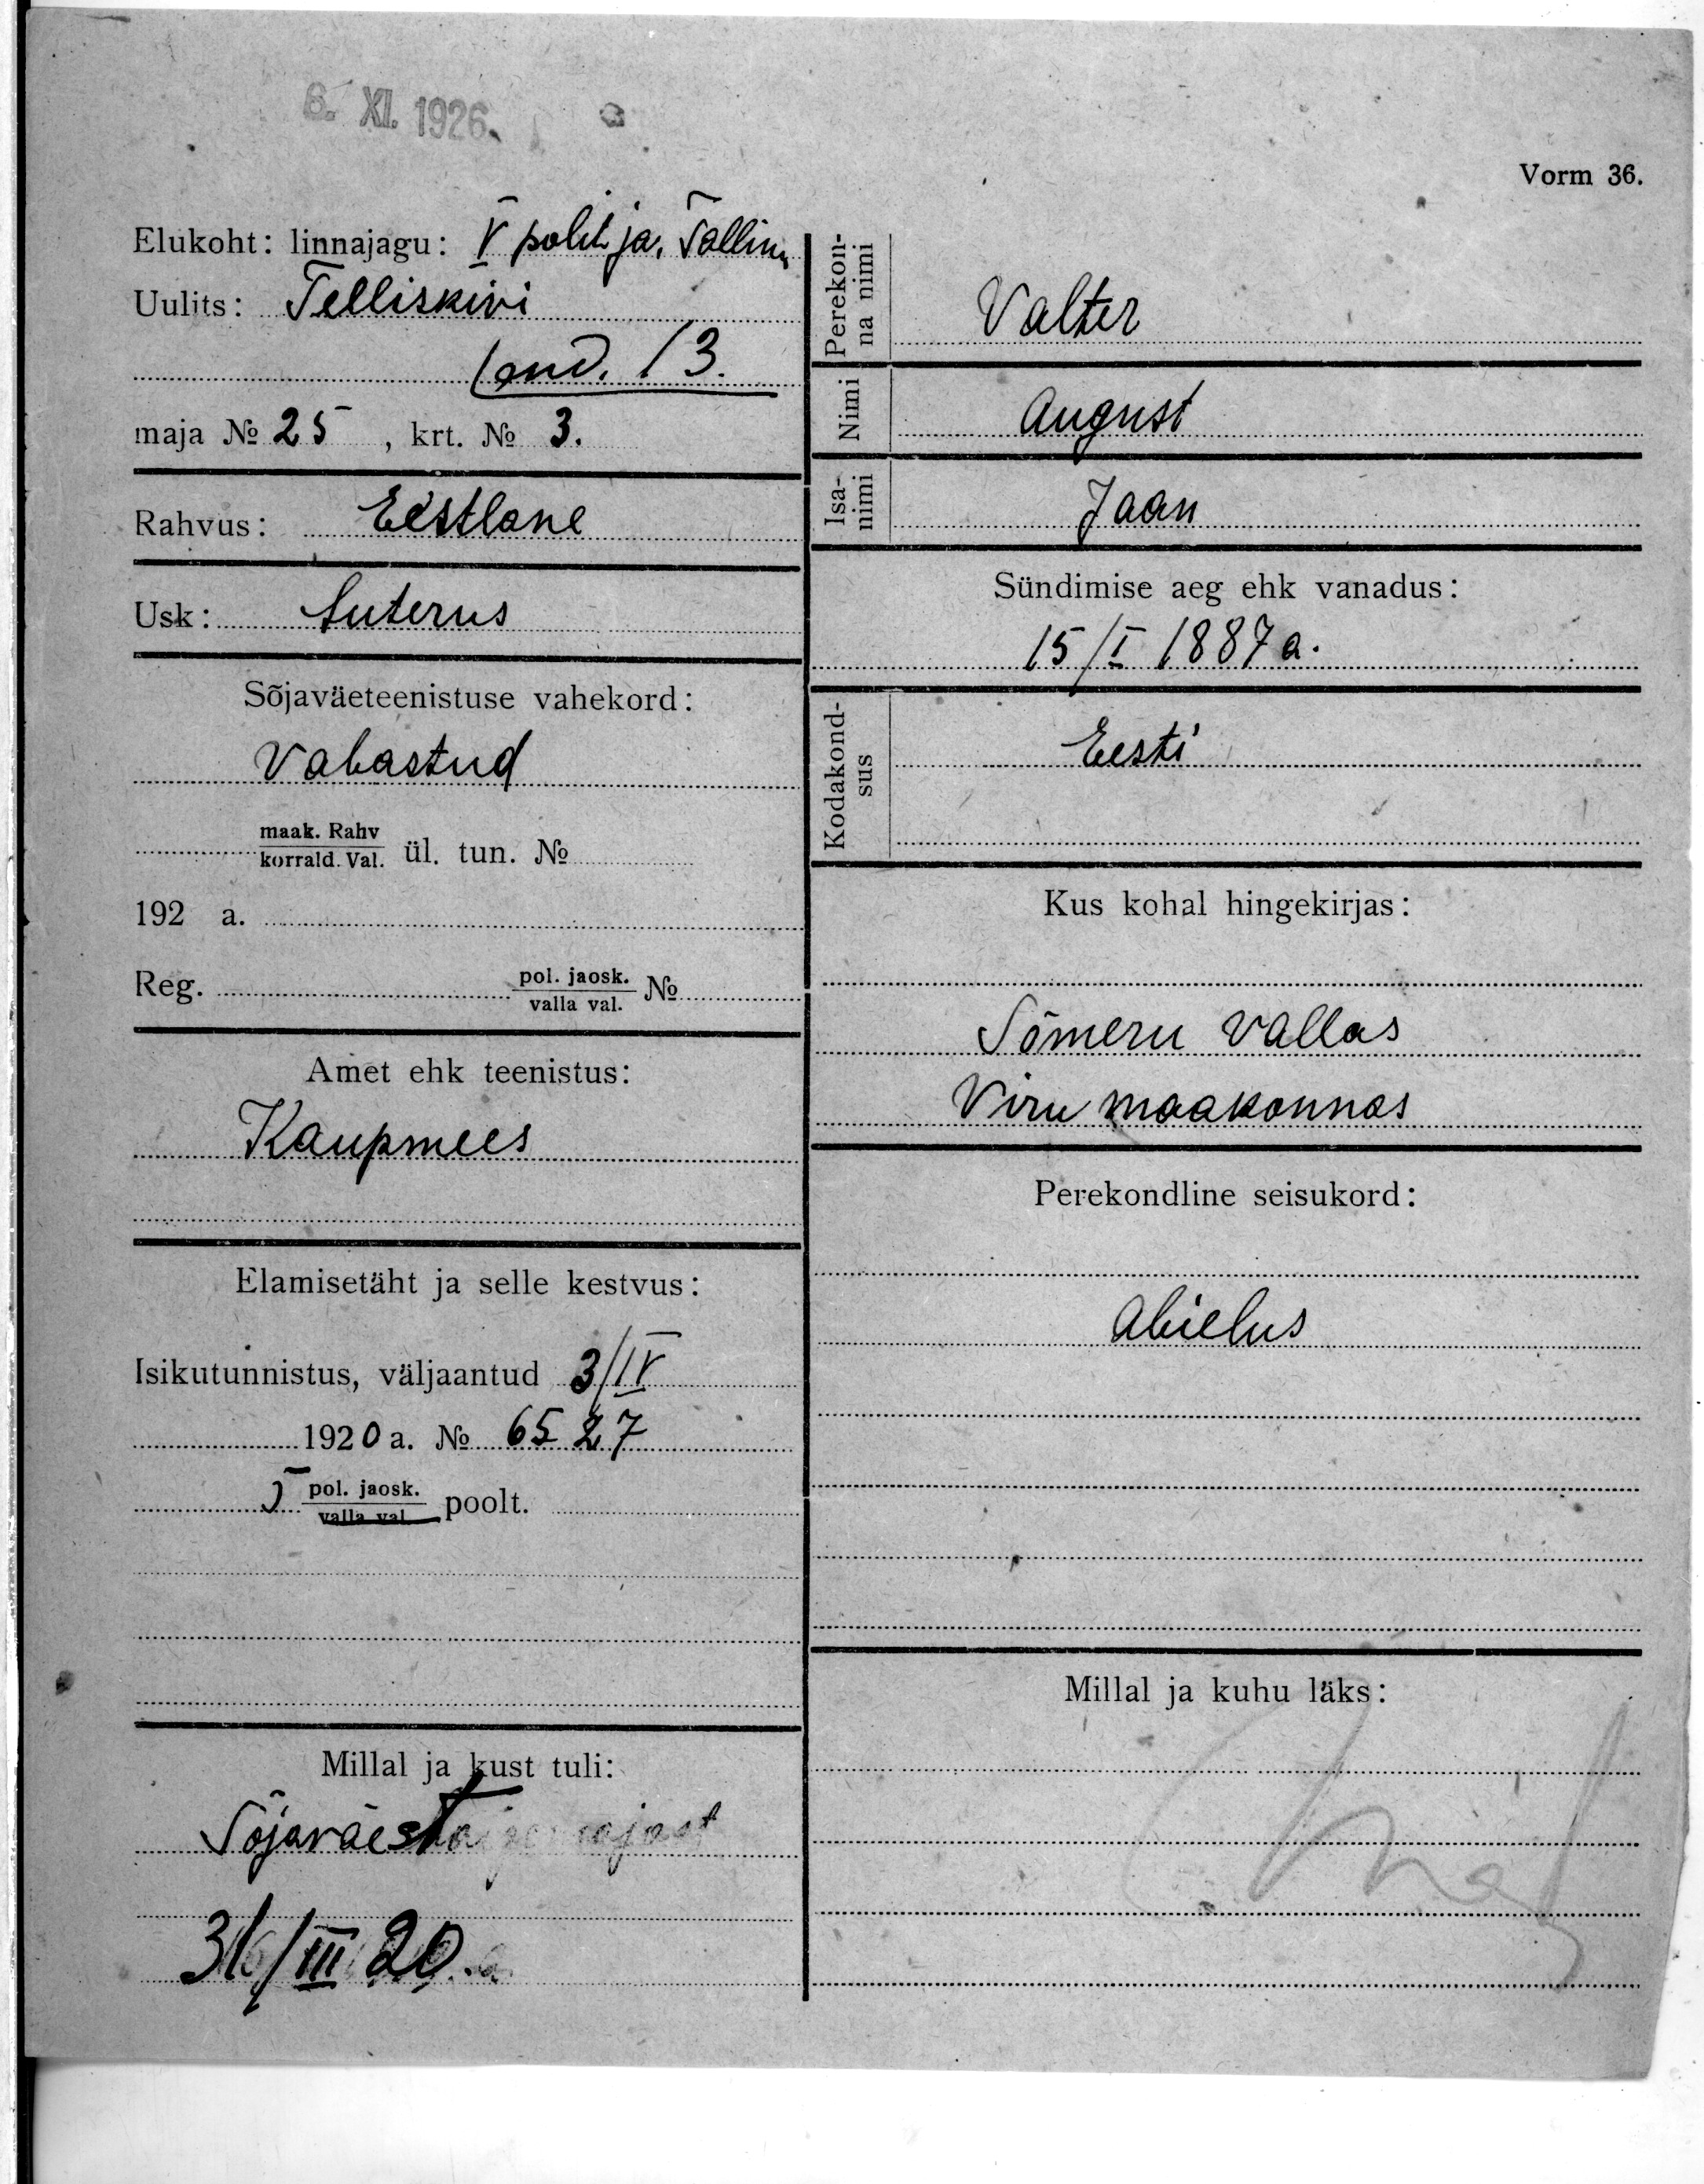 6. XI. 1926.
Vorm 36.
Elukoht: linnajagu: V polit. ja. Tallinn
Uulits: Telliskivi
(end. 13.
maja № 25 , krt. № 3.
Rahvus: Eestlane
Usk: Luterus
Sõjaväeteenistuse vahekord:
Vabastud
maak. Rahv
korrald. Val. ül. tun. №
192 a.
Reg. pol. jaosk. №
valla val.
Amet ehk teenistus:
Kaupmees
Elamisetäht ja selle kestvus:
Isikutunnistus, väljaantud 3/IV
1920 a. № 6527
pol. jaosk. poolt.
valla val.
Millal ja kust tuli:
Sõjaväest
31/III 20.
Perekon-
na nimi
Valter
Nimi
August
Isa-
nimi
Jaan
Sündimise aeg ehk vanadus:
15/I 1887 a.
Kodakond-
sus
Eesti
Kus kohal hingekirjas:
Sõmeru vallas
Viru maakonnas
Perekondline seisukord:
abielus
Millal ja kuhu läks: